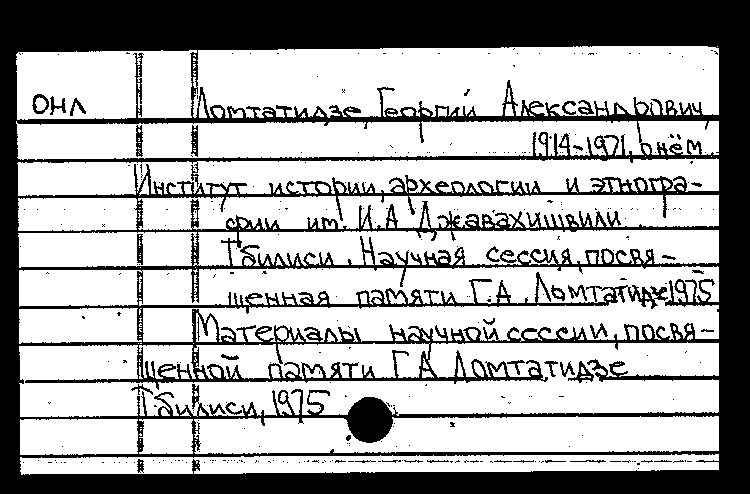 ОНЛ Ломтатидзе, Георгий Александрович,
1914-1971, о нём
Институт истории, археологии и этногра-
фии им. И.А Джавахишвили
Тбилиси. Научная сессия, посвя-
щенная памяти Г.А. Ломтатидзе 1975
Материалы научной сессии, посвя-
щенной памяти Г А Ломтатидзе
Тбилиси, 1975